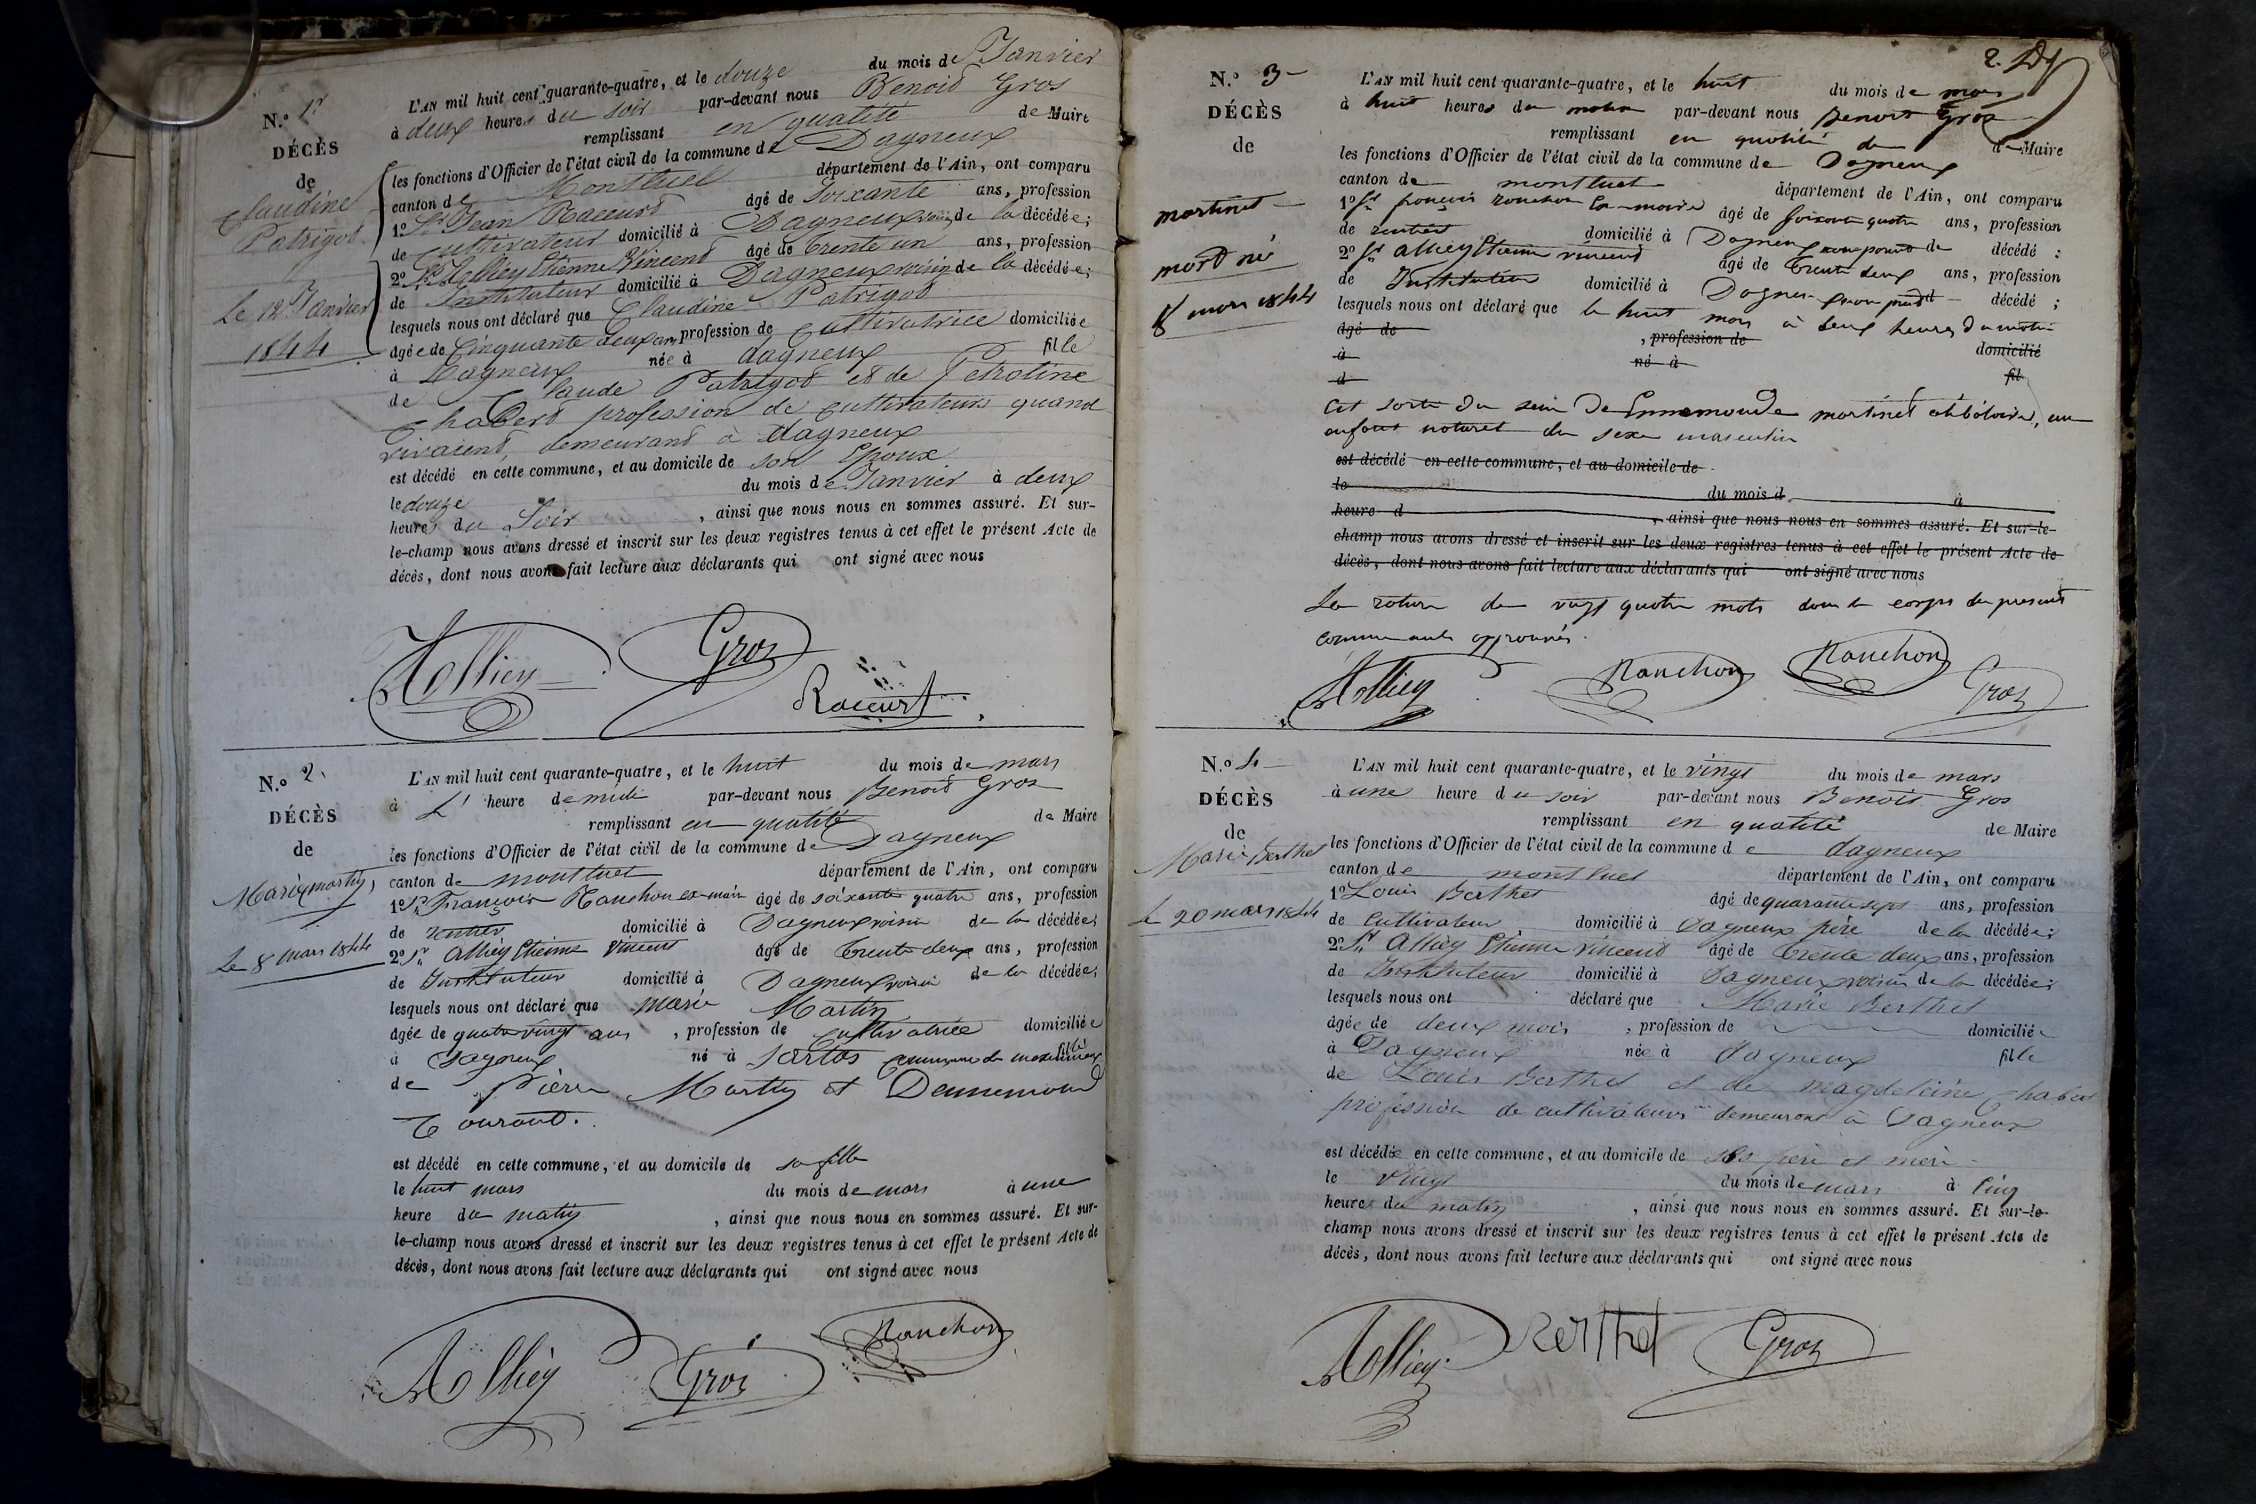 N.º 1er
DÉCÈS
de
Claudine
Patrigod
Le 12 Janvier
1844
L'AN mil huit cent quarante-quatre, et le douze du mois de Janvier
à deux heures du soir par-devant nous Benoid Gros
remplissant en qualité de Maire
les fonctions d'Officier de l'état civil de la commune de Dagneux
canton de Montluel département de l'Ain, ont comparu
1º Sr Jean Raccurd âgé de soixante ans, profession
de cultivateur domicilié à Dagneux voisin de la décédée;
2º Sr Alliey Etienne Vincend âgé de trente un ans, profession
de Instituteur domicilié à Dagneux voisin de la décédée;
lesquels nous ont déclaré que Claudine Patrigod
âgée de Cinquante deux ans, profession de Cultivatrice domiciliée
à Dagneux née à dagneux fille
de Claude Patrigod et de Petroline
Chaberd profession de cultivateurs quand
vivaient, demeurand à dagneux
est décédé en cette commune, et au domicile de son Epoux
le douze du mois de Janvier à deux
heures du Soir, ainsi que nous nous en sommes assuré. Et sur-
le-champ nous avons dressé et inscrit sur les deux registres tenus à cet effet le présent Acte de
décès, dont nous avons fait lecture aux déclarants qui ont signé avec nous
Alliey Gros
Raccurt
N.º 2.
DÉCÈS
de
Marie martin,
Le 8 mars 1844
L'AN mil huit cent quarante-quatre, et le huit du mois de mars
à L' heure de midi par-devant nous Benoid Gros
remplissant en qualité de Maire
les fonctions d'Officier de l'état civil de la commune de Dagneux
canton de montluel département de l'Ain, ont comparu
1º Sr François Ranchon ex-maire âgé de soixante quatre ans, profession
de rentier domicilié à Dagneux voisin de la décédée;
2º Sr Alliey Etienne Vincent âgé de trente deux ans, profession
de Instituteur domicilié à Dagneux voisin de la décédée;
lesquels nous ont déclaré que marie Martin
âgée de quatre vingt ans, profession de cultivatrice domiciliée
à Dagneux né à commune de fille
de Pierre Martin et Dennemond
Tourand.
est décédé en cette commune, et au domicile de sa fille
le huit mars du mois de mars à une
heure du matin, ainsi que nous nous en sommes assuré. Et sur-
le-champ nous avons dressé et inscrit sur les deux registres tenus à cet effet le présent Acte de
décès, dont nous avons fait lecture aux déclarants qui ont signé avec nous
Alliey Gros Ranchon
2.
N.º 3
DÉCÈS
de
martinet
mort né
8 mars 1844
L'AN mil huit cent quarante-quatre, et le huit du mois de mars
à huit heures du matin par-devant nous Benoit Gros
remplissant en qualité de de Maire
les fonctions d'Officier de l'état civil de la commune de Dagneux
canton de montluel département de l'Ain, ont comparu
1º Sr françois ranchon âgé de soixante quatre ans, profession
de rentier domicilié à Dagneux non parent de décédé :
2º Sr alliey Etienne vincend âgé de trente deux ans, profession
de Instituteur domicilié à Dagneux non parent d décédé ;
lesquels nous ont déclaré que le huit mars à deux heures du matin
âgé de , profession de domicilié
à né à fil
d
est sorti du sein De Ennemonde martinet célibataire, un
enfant naturel du sexe masculin
est décédé en cette commune, et au domicile de
le du mois d à
heure d , ainsi que nous nous en sommes assuré. Et sur-le-
champ nous avons dressé et inscrit sur les deux registres tenus à cet effet le présent Acte de
décès, dont nous avons fait lecture aux déclarants qui ont signé avec nous
La rature de vingt quatre mots dans le corps du présent
approuvés.
Alliey Ranchon Ranchon Gros
N.º 4
DÉCÈS
de
Marie Berthet
le 20 mars 1844
L'AN mil huit cent quarante-quatre, et le vingt du mois de mars
à une heure du soir par-devant nous Benoit Gros
remplissant en qualité de Maire
les fonctions d'Officier de l'état civil de la commune de dagneux
canton de montluel département de l'Ain, ont comparu
1º Louis Berthet âgé de quarante sept ans, profession
de cultivateur domicilié à Dagneux père de la décédée;
2º Sr Alliey Etienne vincend âgé de trente deux ans, profession
de Instituteur domicilié à Dagneux voisin de la décédée;
lesquels nous ont déclaré que Marie Berthet
âgée de deux mois, profession de domiciliée
à Dagneux née à dagneux fille
de Louis Berthet et de magdeleine chabert
profession de cultivateurs demeurant à Dagneux
est décédée en cette commune, et au domicile de ses père et mère
le vingt du mois de mars à cinq
heures du matin, ainsi que nous nous en sommes assuré. Et sur-le-
champ nous avons dressé et inscrit sur les deux registres tenus à cet effet le présent Acte de
décès, dont nous avons fait lecture aux déclarants qui ont signé avec nous
Alliey Berthet Gros